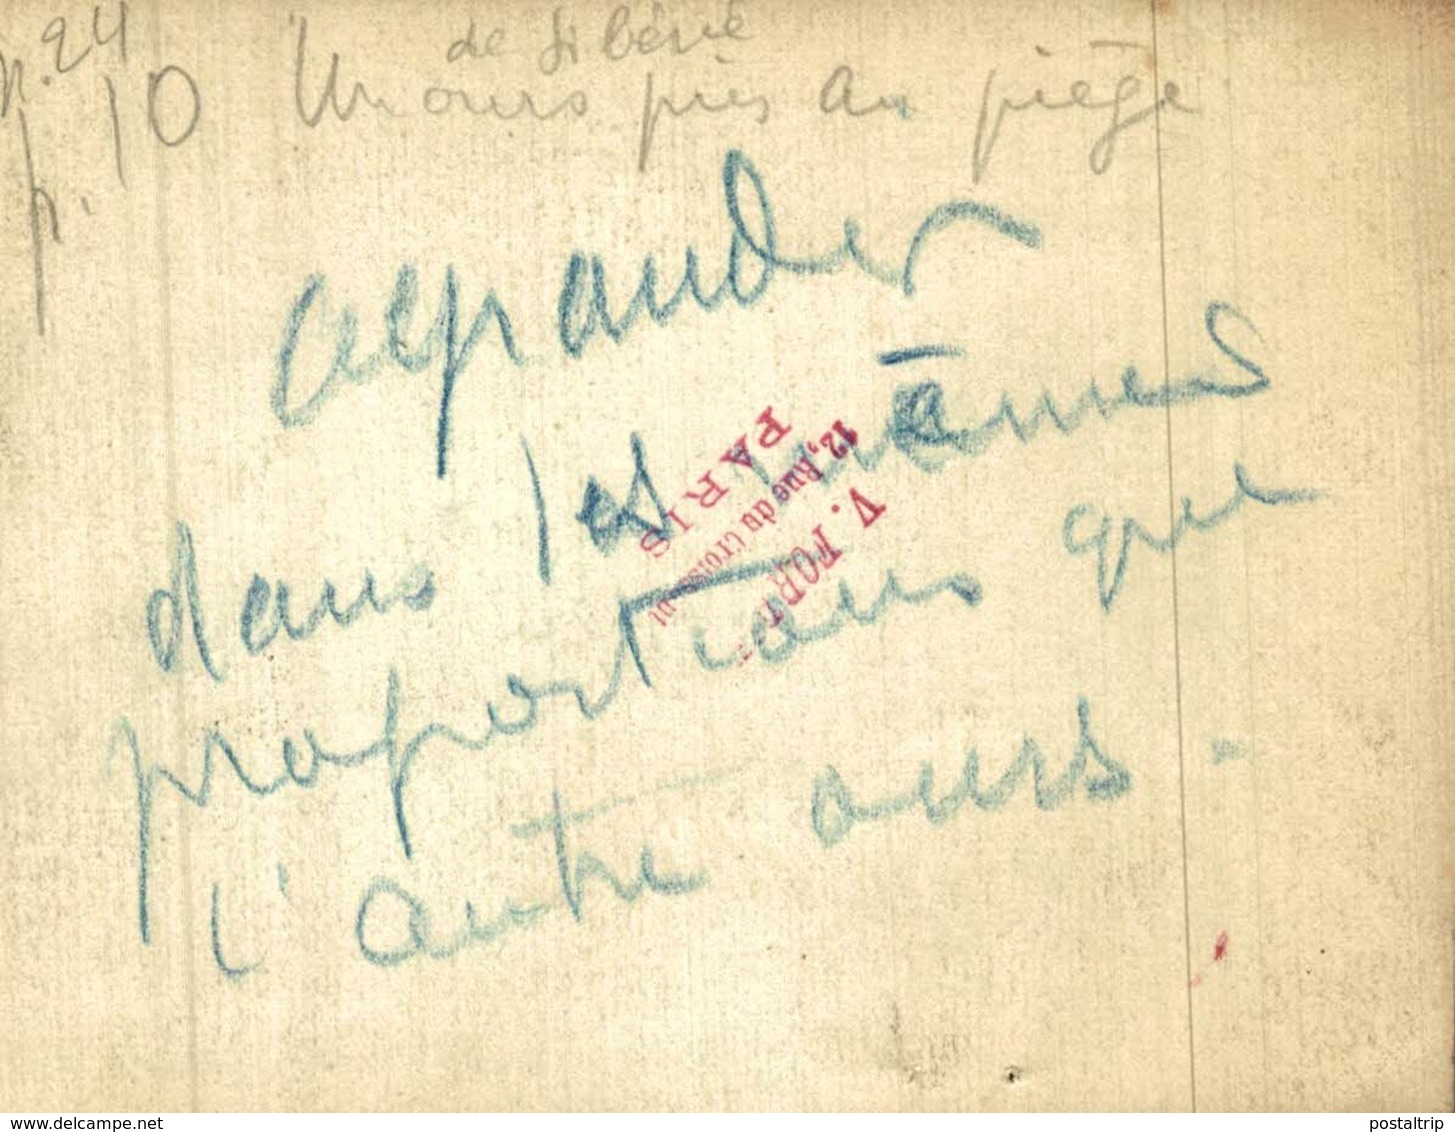 n. 24
p. 10
de Sibérie
Un ours pris au piège
p.
agrandir
dans les mêmes
proportions que
l'autre ours.
V. FOR
12, Rue du Croissant
PARIS
www.delcampe.net
postaltrip